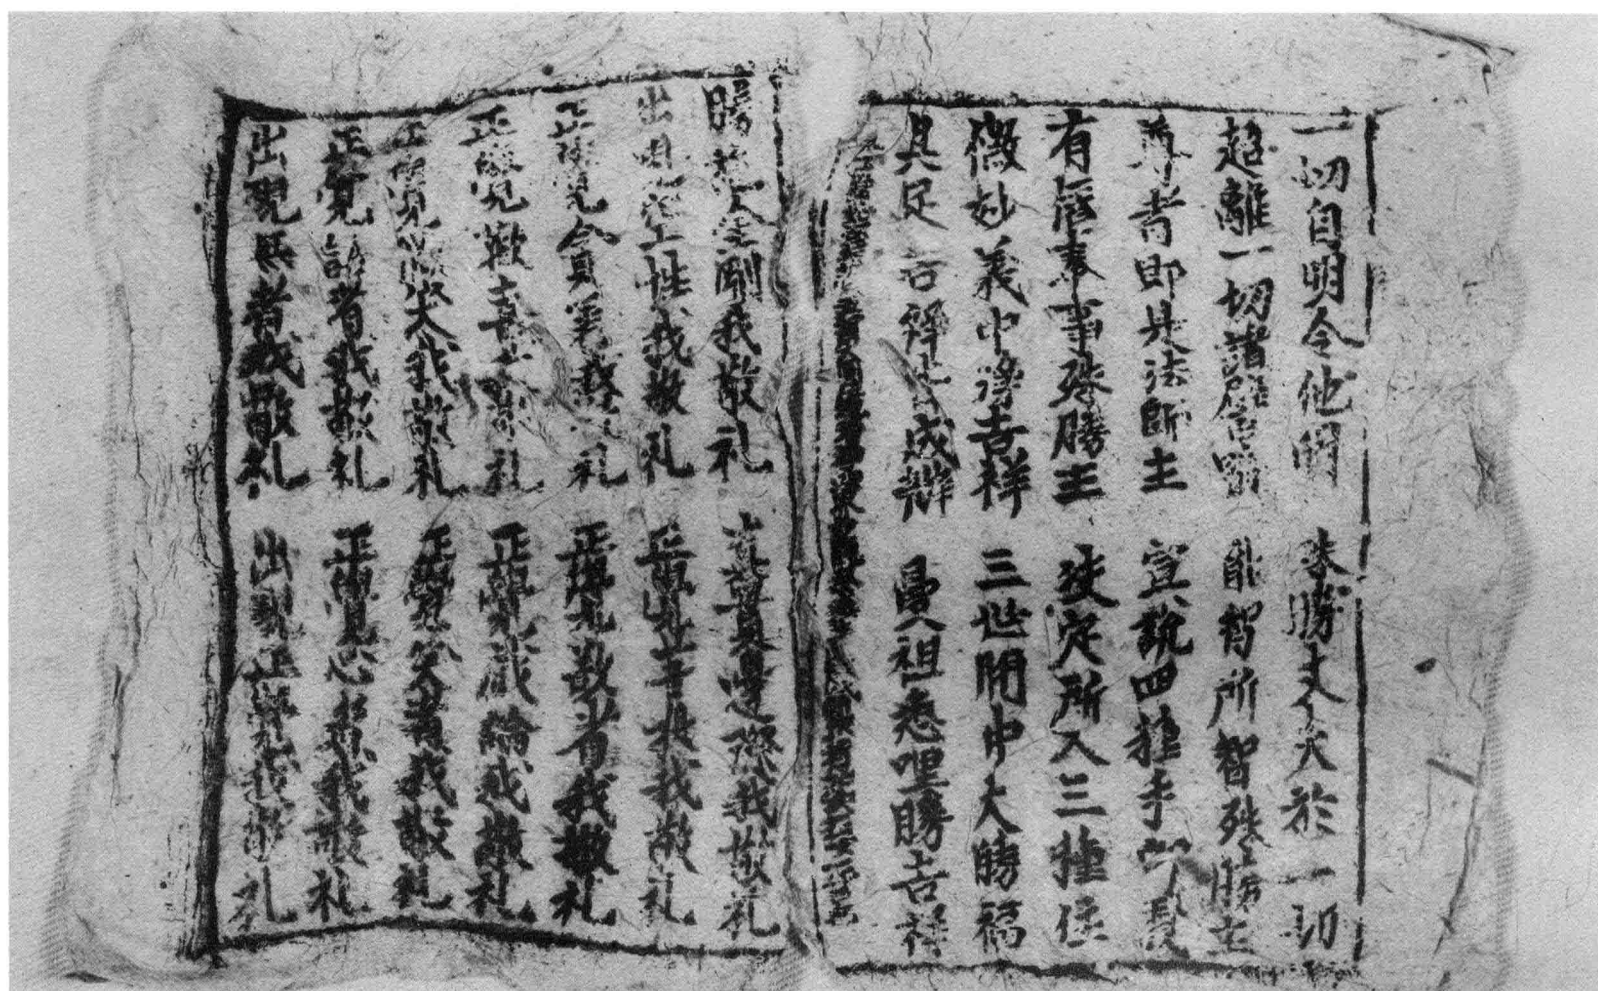 一切自明令他明 殊勝丈夫於一切
超離一切諸譬喻 能智所智殊勝主
尊者即是法師主 宣說四種手印義
有應奉事殊勝主 決定所入三種住
微妙義中淨吉祥 三世間中大勝福
具足吉祥皆成辦 曼祖悉哩勝吉祥
勝施金剛我敬礼 真實邊際我敬礼
出現空性我敬礼 正覺菩提我敬礼
正覺貪著我敬礼 正覺欲者我敬礼
正覺歡喜我敬礼 正覺戲論我敬礼
正覺微笑我敬礼 正覺笑者我敬礼
正覺語者我敬礼 正覺心者我敬礼
出現無者我敬礼 出現正覺我敬礼